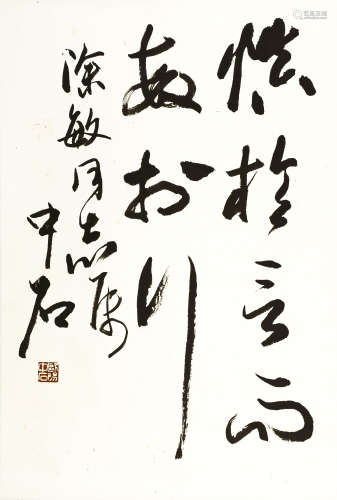 慎於言而
敏於行
徐敏同志属
中石